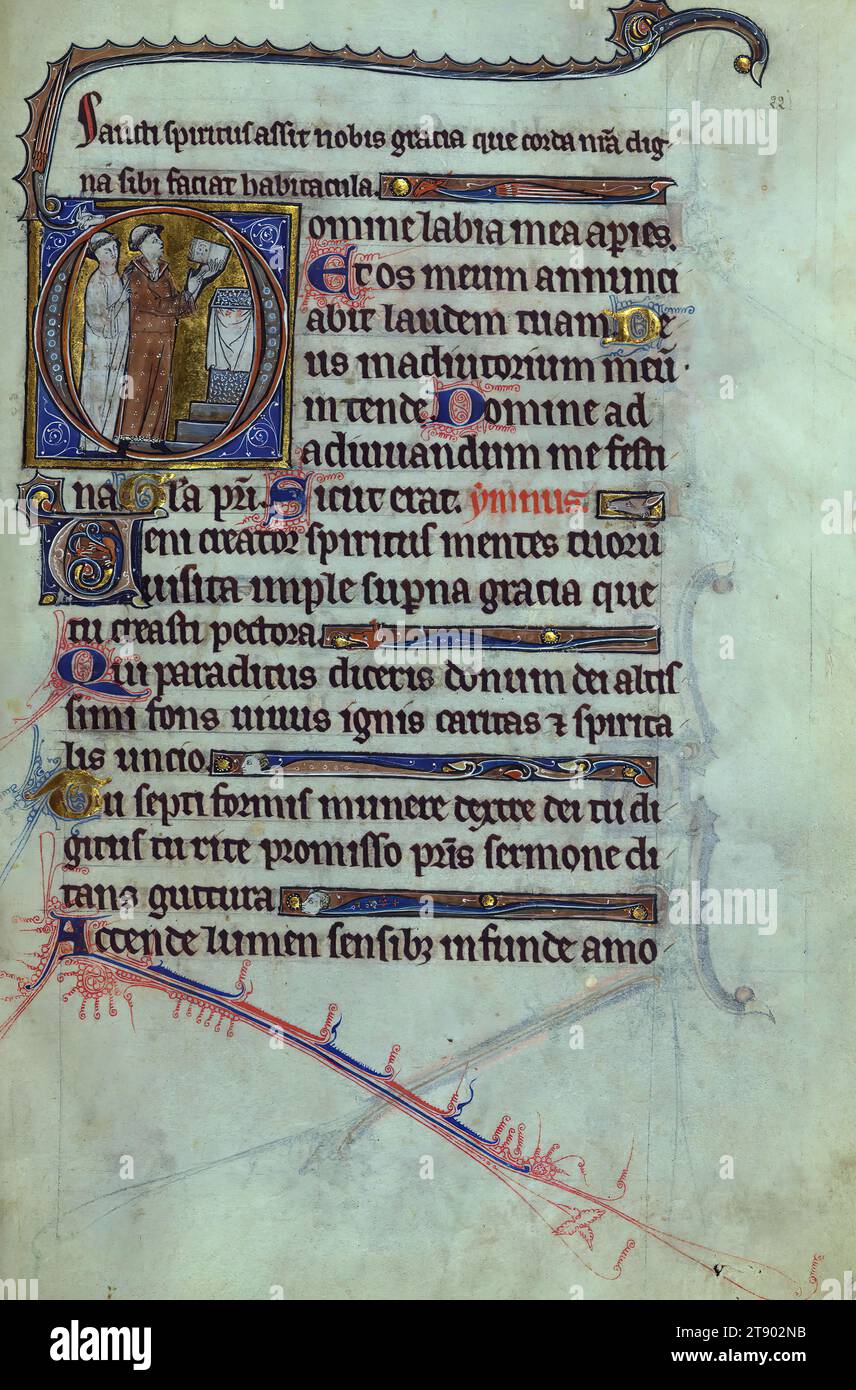 Sancti spiritus assit nobis gracia que corda nr̄a dig
na sibi faciat habitacula.
22
Domine labia mea aperies.
Et os meum annunci
abit laudem tuam De
us in adiutorium meū
intende Domine ad
adiuuandum me festi
na Gl̄a pr̄i. Sicut erat. ymnus.
Ueni creator spiritus mentes tuorū
uisita imple sup̄na gracia que
tu creasti pectora.
Qui paraclitus diceris donum dei altis
simi fons uiuus ignis caritas ⁊ spirita
lis unctio.
Tu septiformis munere dextre dei tu di
gitus tu rite promisso pr̄is sermone di
tans guttura.
Accende lumen sensibꝫ infunde amo
alamy
Image ID: 2T902NB
www.alamy.com